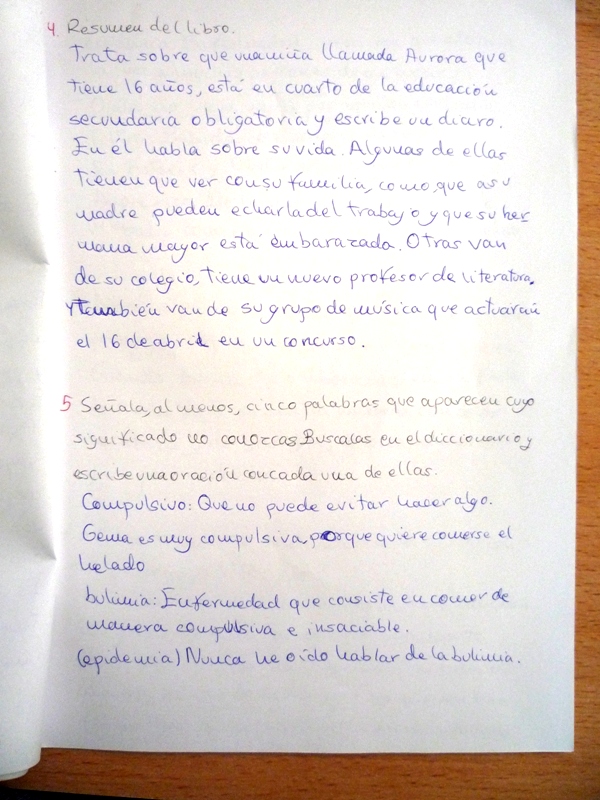 4. Resumen del libro.
Trata sobre que una niña llamada Aurora que
tiene 16 años, está en cuarto de la educación
secundaria obligatoria y escribe un diario.
En él habla sobre su vida. Algunas de ellas
tienen que ver con su familia, como, que a su
madre pueden echarla del trabajo y que su her
mana mayor está embarazada. Otras van
de su colegio, tiene un nuevo profesor de literatura,
Y también van de su grupo de música que actuarán
el 16 de abril en un concurso.
5 Señala, al menos, cinco palabras que aparecen cuyo
significado no conozcas. Buscalas en el diccionario y
escribe una oración con cada una de ellas.
Compulsivo: Que no puede evitar hacer algo.
Gema es muy compulsiva, porque quiere comerse el
helado
bulimia: Enfermedad que consiste en comer de
manera compulsiva e insaciable.
(epidemia) Nunca he oído hablar de la bulimia.